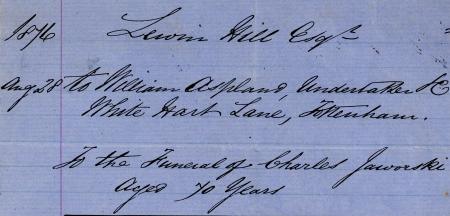 1876 Lewin Hill Esqr.
Aug 28 to William Aspland, Undertaker &c
White Hart Lane, Tottenham.
To the Funeral of Charles Jaworski
Aged 70 Years